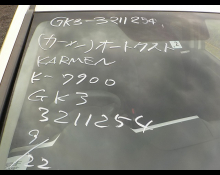 GK3-3211254
(カーメン)オートクストー
KARMEN
K-7900
GK3
3211254
9/22